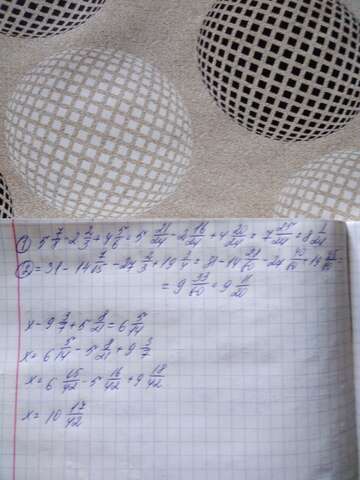 1) 5 7/8 - 2 2/3 + 4 5/6 = 5 21/24 - 2 16/24 + 4 20/24 = 7 25/24 = 8 1/24
2) = 31 - 14 7/15 - 27 2/3 + 19 = 31 - 14 28/60 - 40/60 + 19
= 9 33/60 = 9 11/20
x - 9 3/7 + 5 8/21 = 6 5/14
x = 6 5/14 - 5 8/21 + 9 3/7
x = 6 15/42 - 5 16/42 + 9 18/42
x = 10 17/42